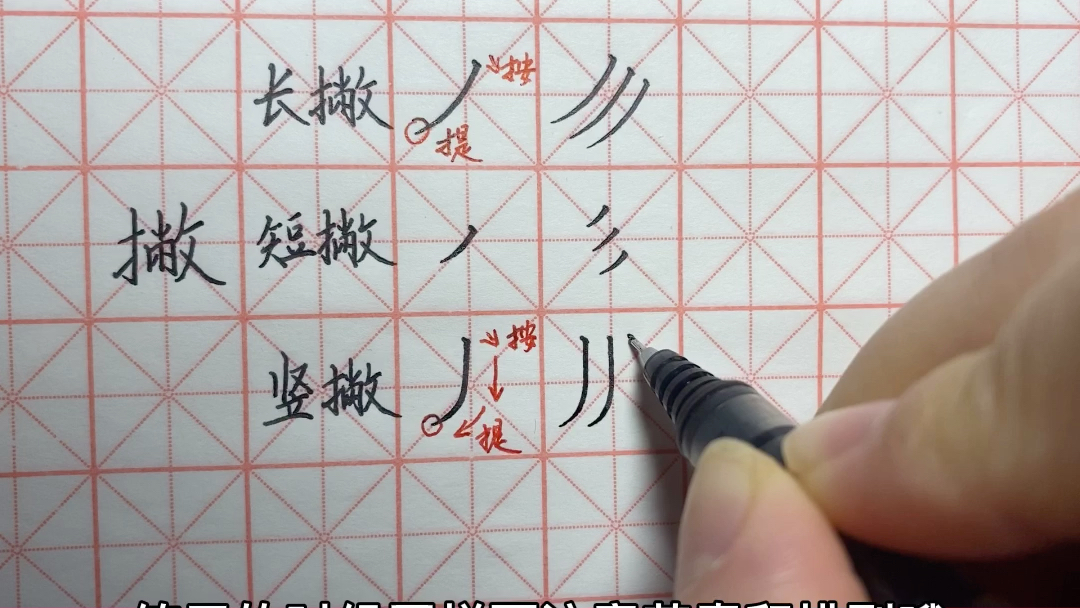 长撇 按
提
撇 短撇
竖撇 按
提